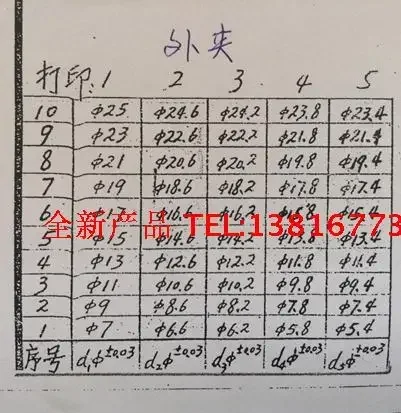 外夹
打印: 1 2 3 4 5
10 φ25 φ24.6 φ24.2 φ23.8 φ23.4
9 φ23 φ22.6 φ22.2 φ21.8 φ21.4
8 φ21 φ20.6 φ20.2 φ19.8 φ19.4
7 φ19 φ18.6 φ18.2 φ17.8 φ17.4
6 φ17 φ16.6 φ16.2 φ15.8 φ15.4
全新产品 TEL:13816773
5 φ15 φ14.6 φ14.2 φ13.8 φ13.4
4 φ13 φ12.6 φ12.2 φ11.8 φ11.4
3 φ11 φ10.6 φ10.2 φ9.8 φ9.4
2 φ9 φ8.6 φ8.2 φ7.8 φ7.4
1 φ7 φ6.6 φ6.2 φ5.8 φ5.4
序号 d₁φ±0.03 d₂φ±0.03 d₃φ±0.03 d₄φ±0.03 d₅φ±0.03